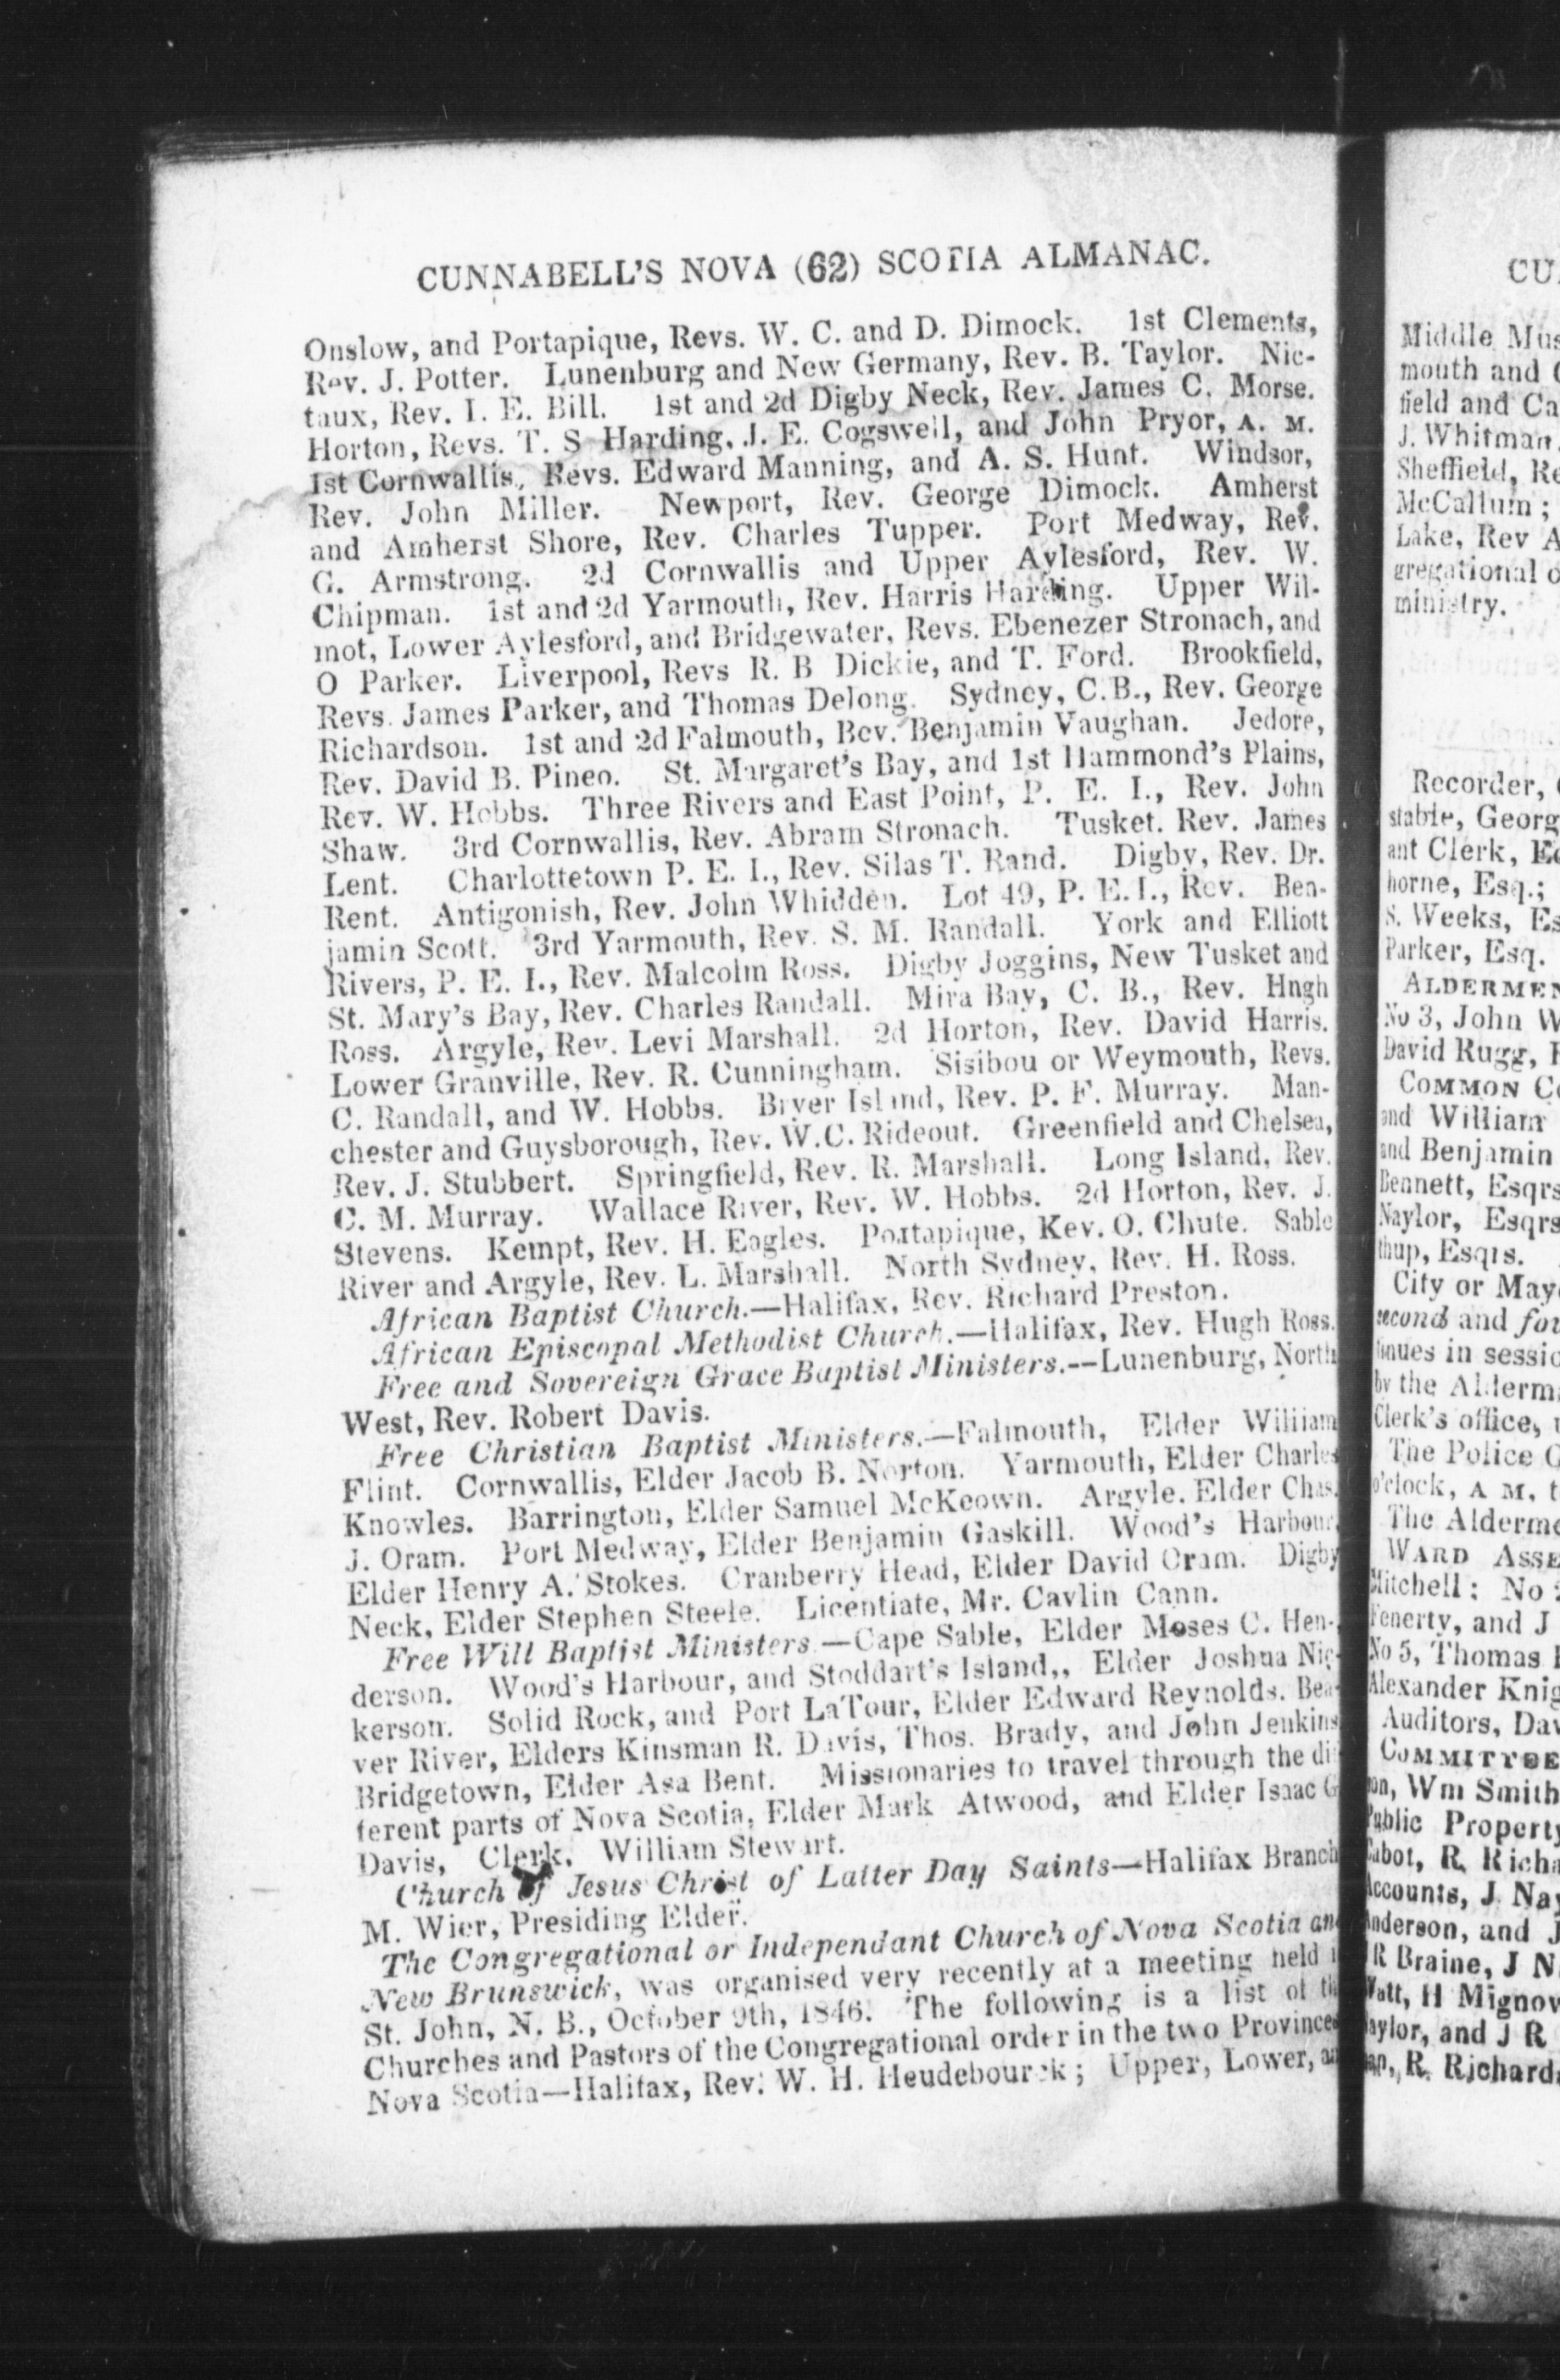 CUNNABELL'S NOVA (62) SCOTIA ALMANAC.
Onslow, and Portapique, Revs. W. C. and D. Dimock. 1st Clements,
Rev. J. Potter. Lunenburg and New Germany, Rev. B. Taylor. Nic-
taux, Rev. I. E. Bill. 1st and 2d Digby Neck, Rev. James C. Morse.
Horton, Revs. T. S Harding, J. E. Cogswell, and John Pryor, A. M.
1st Cornwallis, Revs. Edward Manning, and A. S. Hunt. Windsor,
Rev. John Miller. Newport, Rev. George Dimock. Amherst
and Amherst Shore, Rev. Charles Tupper. Port Medway, Rev.
G. Armstrong. 2d Cornwallis and Upper Aylesford, Rev. W.
Chipman. 1st and 2d Yarmouth, Rev. Harris Harding. Upper Wil-
mot, Lower Aylesford, and Bridgewater, Revs. Ebenezer Stronach, and
O Parker. Liverpool, Revs R. B Dickie, and T. Ford. Brookfield,
Revs. James Parker, and Thomas Delong. Sydney, C.B., Rev. George
Richardson. 1st and 2d Falmouth, Rev. Benjamin Vaughan. Jedore,
Rev. David B. Pineo. St. Margaret's Bay, and 1st Hammond's Plains,
Rev. W. Hobbs. Three Rivers and East Point, P. E. I., Rev. John
Shaw. 3rd Cornwallis, Rev. Abram Stronach. Tusket. Rev. James
Lent. Charlottetown P. E. I., Rev. Silas T. Rand. Digby, Rev. Dr.
Rent. Antigonish, Rev. John Whidden. Lot 49, P. E.I., Rev. Ben-
jamin Scott. 3rd Yarmouth, Rev. S. M. Randall. York and Elliott
Rivers, P. E. I., Rev. Malcolm Ross. Digby Joggins, New Tusket and
St. Mary's Bay, Rev. Charles Randall. Mira Bay, C. B., Rev. Hngh
Ross. Argyle, Rev. Levi Marshall. 2d Horton, Rev. David Harris.
Lower Granville, Rev. R. Cunningham. Sisibou or Weymouth, Revs.
C. Randall, and W. Hobbs. Bryer Island, Rev. P. F. Murray. Man-
chester and Guysborough, Rev. W.C. Rideout. Greenfield and Chelsea,
Rev. J. Stubbert. Springfield, Rev. R. Marshall. Long Island, Rev.
C. M. Murray. Wallace River, Rev. W. Hobbs. 2d Horton, Rev. J.
Stevens. Kempt, Rev. H. Eagles. Portapique, Kev. O. Chute. Sable
River and Argyle, Rev. L. Marshall. North Sydney, Rev. H. Ross.
African Baptist Church.—Halifax, Rev. Richard Preston.
African Episcopal Methodist Church.—Halifax, Rev. Hugh Ross.
Free and Sovereign Grace Baptist Ministers.—Lunenburg, North
West, Rev. Robert Davis.
Free Christian Baptist Ministers.—Falmouth, Elder William
Flint. Cornwallis, Elder Jacob B. Norton. Yarmouth, Elder Charles
Knowles. Barrington, Elder Samuel McKeown. Argyle. Elder Chas.
J. Oram. Port Medway, Elder Benjamin Gaskill. Wood's Harbour,
Elder Henry A. Stokes. Cranberry Head, Elder David Oram. Digby
Neck, Elder Stephen Steele. Licentiate, Mr. Cavlin Cann.
Free Will Baptist Ministers.—Cape Sable, Elder Moses C. Hen-
derson. Wood's Harbour, and Stoddart's Island,, Elder Joshua Nic-
kerson. Solid Rock, and Port LaTour, Elder Edward Reynolds. Bea-
ver River, Elders Kinsman R. Davis, Thos. Brady, and John Jenkins
Bridgetown, Elder Asa Bent. Missionaries to travel through the dif
ferent parts of Nova Scotia, Elder Mark Atwood, and Elder Isaac G
Davis, Clerk, William Stewart.
Church of Jesus Christ of Latter Day Saints—Halifax Branch
M. Wier, Presiding Elder.
The Congregational or Independant Church of Nova Scotia and
New Brunswick, was organised very recently at a meeting held
St. John, N. B., October 9th, 1846. The following is a list of the
Churches and Pastors of the Congregational order in the two Provinces
Nova Scotia—Halifax, Rev. W. H. Heudebourck; Upper, Lower, an
CU
Middle Mus
mouth and
field and Ca
J. Whitman
Sheffield, Re
McCallum;
Lake, Rev A
gregational
ministry.
Recorder,
stable, Georg
ant Clerk, Ed
horne, Esq.;
S. Weeks, Es
Parker, Esq.
ALDERMEN
No 3, John W
David Rugg,
COMMON Co
and William
and Benjamin
Bennett, Esqrs
Naylor, Esqrs
thup, Esqrs.
City or Mayo
second and fou
tinues in sessio
by the Alderm
Clerk's office,
The Police
o'clock, A M, t
The Alderme
WARD ASSE
Mitchell; No
Fenerty, and J
No 5, Thomas
Alexander Knig
Auditors, Dav
COMMITTEE
son, Wm Smith
Public Property
Cabot, R. Richa
Accounts, J. Nay
Anderson, and J
R Braine, J N
Watt, H Mignow
aylor, and J R
R. Richard